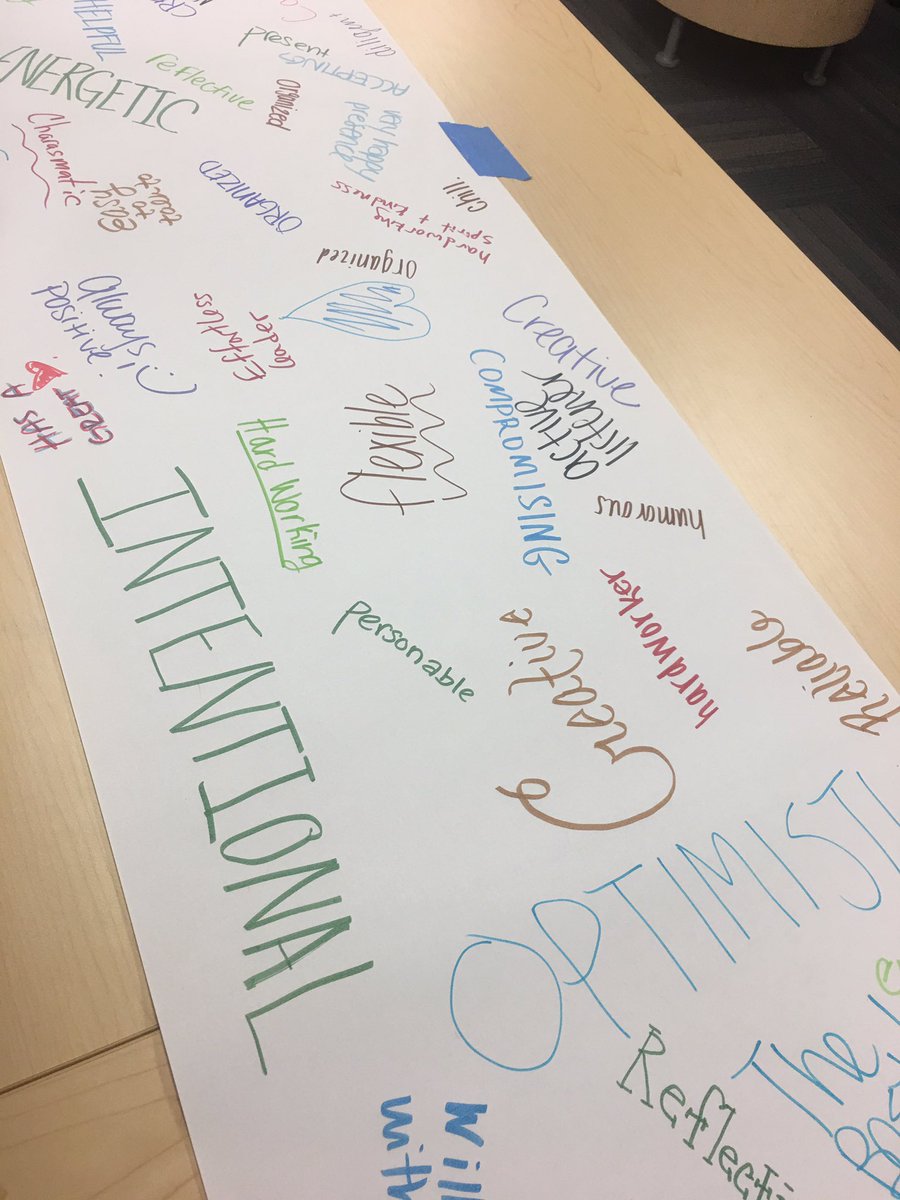 HELPFUL
diligent
present
ACCEPTING
ENERGETIC
reflective
organized
very happy
presence
Charasmatic
easy
to
talk to
ORGANIZED
chill.
hardworking
spirit + kindness
organized
always :)
POSITIVE.
Effortless
leader
HAS A
GREAT
Creative
COMPROMISING
active
listener
Flexible
Hard Working
humorous
INTENTIONAL
personable
hardworker
Creative
Reliable
OPTIMISTI
Reflecti
The
Will
with